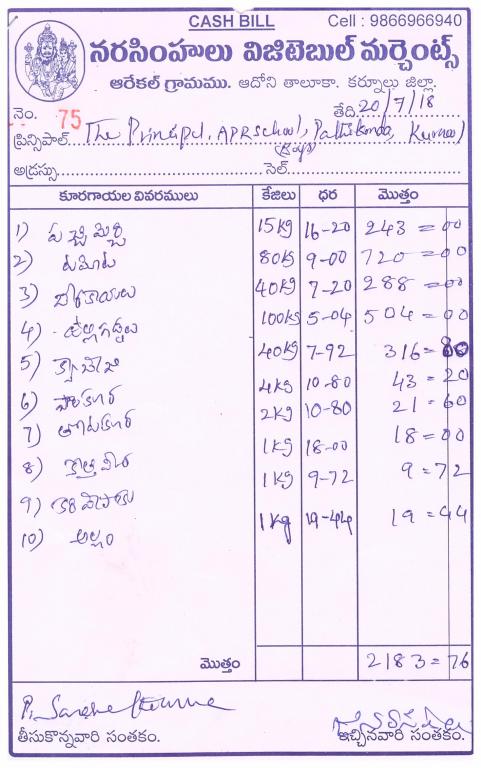 CASH BILL Cell : 9866966940
నరసింహలు విజిటెబుల్ మర్చెంట్స్
ఆరేకల్ గ్రామము. ఆదోని తాలూకా. కర్నూలు జిల్లా.
నెం. 75 తేది 20/7/18
ప్రిన్సిపాల్ The Principal, APR School, Pattikonda, Kurnool
(Boys)
అడ్రస్సు సెల్
కూరగాయల వివరములు కేజీలు ధర మొత్తం
1) పచ్చి మిర్చి 15 kg 16-20 243=00
2) టమోట 80 kg 9-00 720=00
3) 40 kg 7-20 288=00
4) ఉల్లగడ్డలు 100 kg 5-04 504=00
5) క్యాబేజి 40 kg 7-92 316=80
6) పాలకూర 4 kg 10-80 43=20
7) తోటకూర 2 kg 10-80 21=60
8) కొత్తమీర 1 kg 18-00 18=00
9) కరివేపాకు 1 kg 9-72 9=72
10) అల్లం 1 kg 19-44 19=44
మొత్తం 2183=76
తీసుకొన్నవారి సంతకం. ఇచ్చినవారి సంతకం.